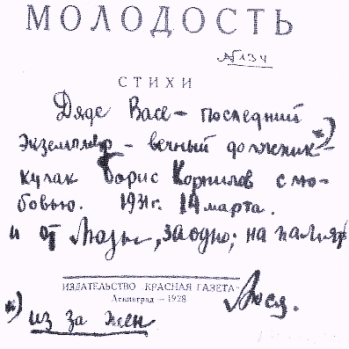 МОЛОДОСТЬ
№134
СТИХИ
Дяде Васе – последний
экземпляр – вечный должник*) –
кулак Борис Корнилов с лю-
бовью. 1931г. 14 марта.
и от Люды, заодно; на память
ИЗДАТЕЛЬСТВО КРАСНАЯ ГАЗЕТА
Ленинград – 1928
Люся.
*) из за жен